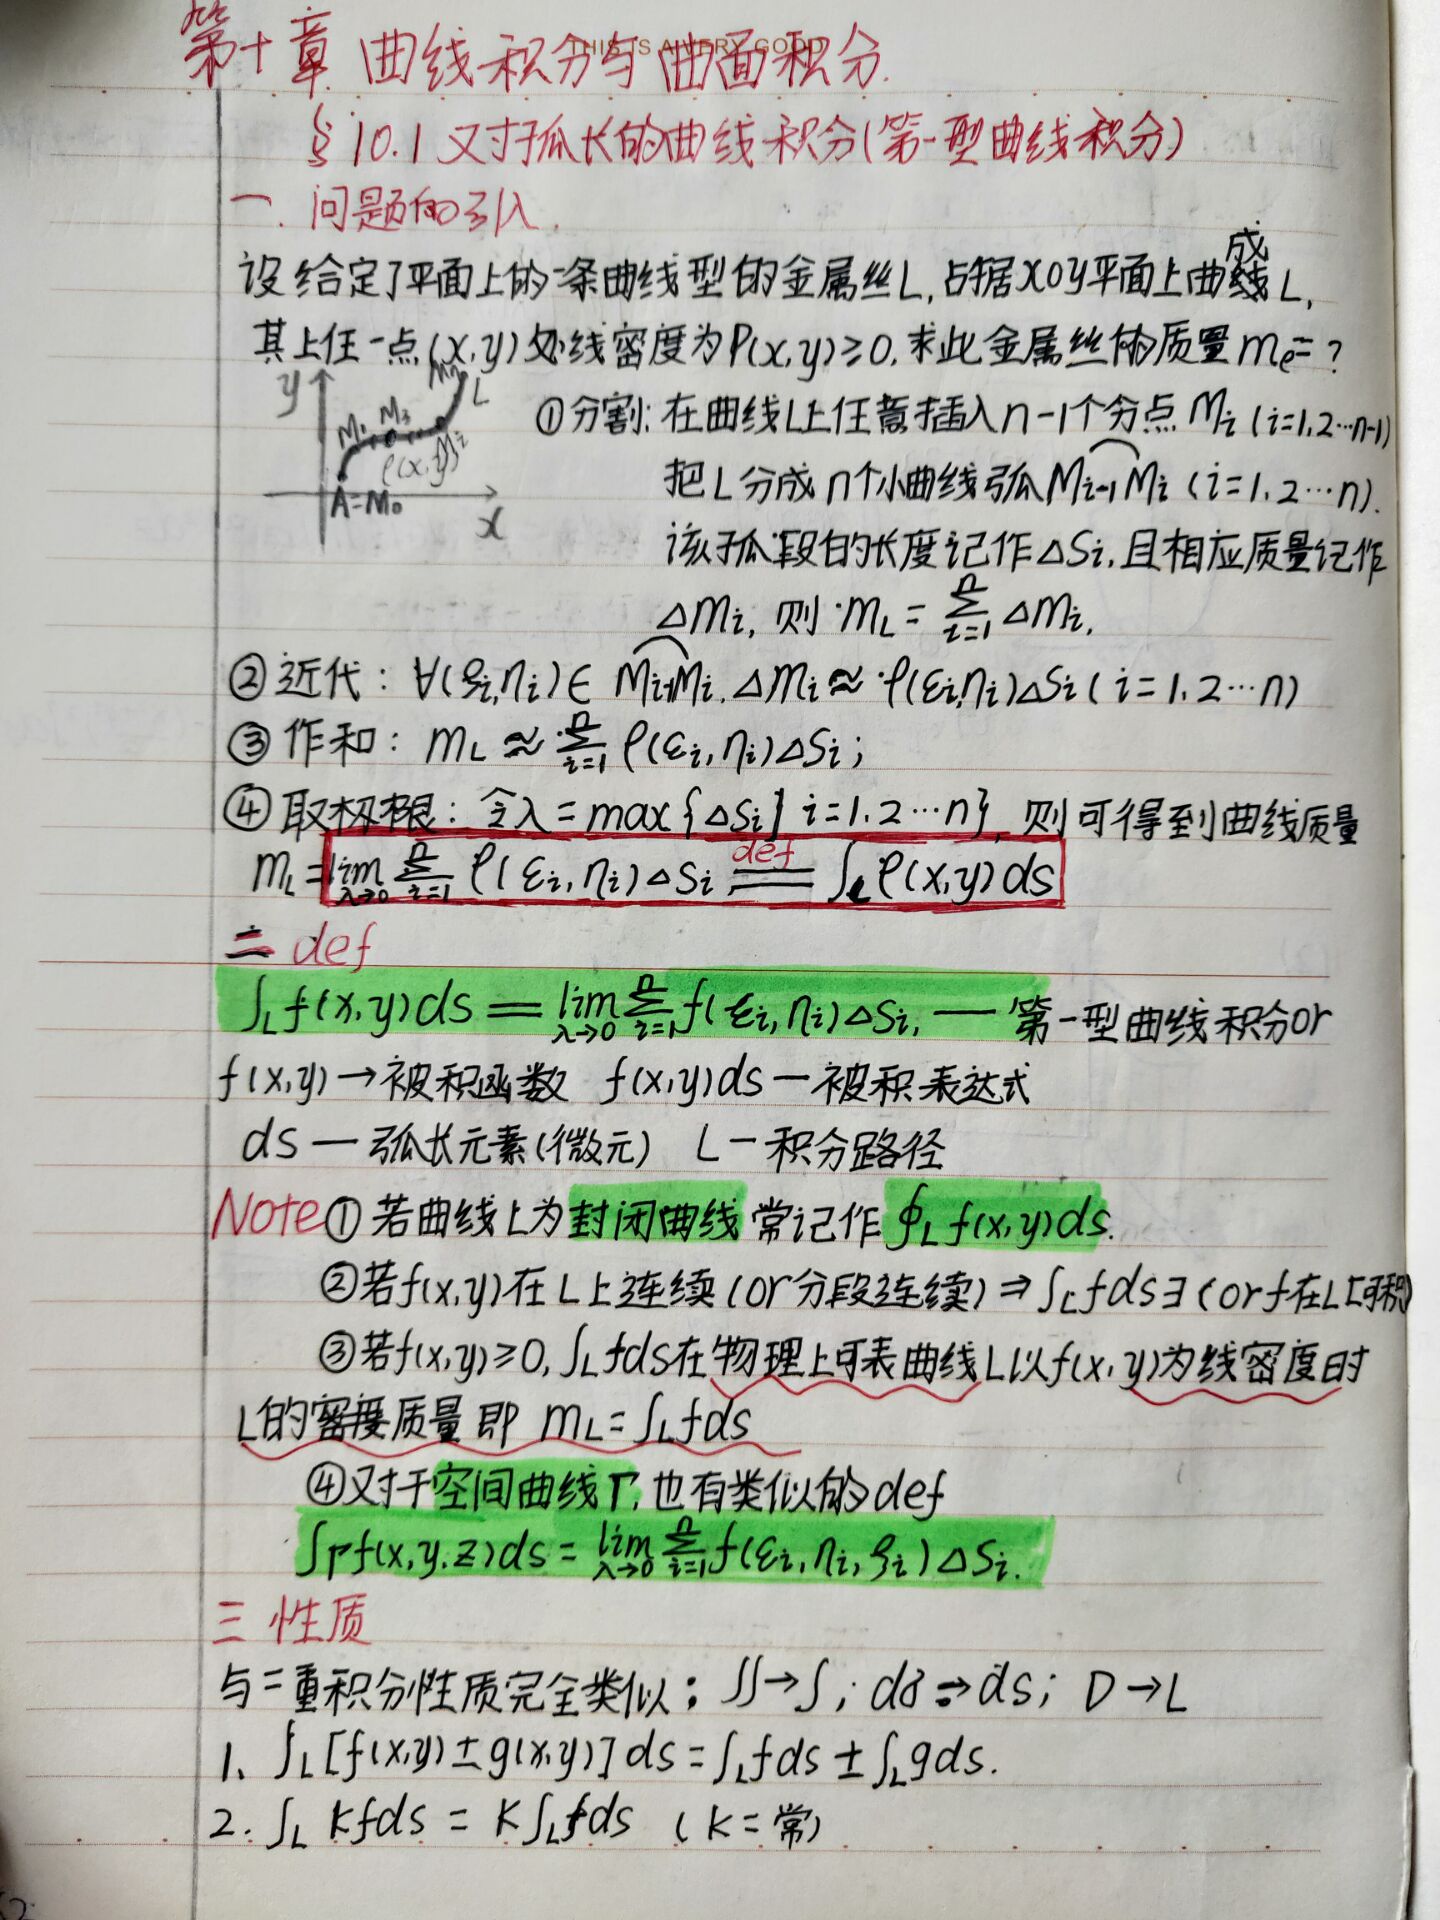 THIS IS A VERY GOOD
第十章 曲线积分与曲面积分.
§10.1 对于弧长的曲线积分(第一型曲线积分)
一. 问题的引入.
设给定了平面上的一条曲线型的金属丝L,占据xoy平面上曲线L,
成
其上任一点(x,y)处线密度为ρ(x,y)≥0.求此金属丝的质量me=?
y
M₁ M₂ Mn L
ρ(x,y) Mi
A=M₀
x
①分割:在曲线L上任意插入n-1个分点Mi(i=1,2…n-1)
把L分成n个小曲线弧Mi-1Mi(i=1.2…n).
该弧段的长度记作ΔSi,且相应质量记作
Δmi,则mL=∑ⁿᵢ₌₁Δmi.
②近代:∀(ξi,ηi)∈Mi-1Mi.Δmi≈ρ(εi,ηi)ΔSi(i=1.2…n)
③作和:mL≈∑ⁿᵢ₌₁ρ(εi,ηi)ΔSi;
④取极限:令λ=max{ΔSi} i=1.2…n},则可得到曲线质量
mL=lim λ→0 ∑ⁿᵢ₌₁ρ(εi,ηi)ΔSi def== ∫Lρ(x,y)ds
二 def
∫Lf(x,y)ds=lim λ→0 ∑ⁿᵢ₌₁f(εi,ηi)ΔSi,—第一型曲线积分or
f(x,y)→被积函数 f(x,y)ds—被积表达式
ds—弧长元素(微元) L—积分路径
Note①若曲线L为封闭曲线常记作∮Lf(x,y)ds.
②若f(x,y)在L上连续(or分段连续)⇒∫Lfds∃(or f在L上可积)
③若f(x,y)≥0,∫Lfds在物理上可表曲线L以f(x,y)为线密度时
L的密度质量即 mL=∫Lfds
④对于空间曲线Γ,也有类似的def
∫Γf(x,y,z)ds=lim λ→0 ∑ⁿᵢ₌₁f(εi,ηi,ζi)ΔSi.
三 性质
与二重积分性质完全类似:∬→∫;dσ→ds;D→L
1、∫L[f(x,y)±g(x,y)]ds=∫Lfds±∫Lgds.
2.∫L kfds=k∫Lfds (k=常)